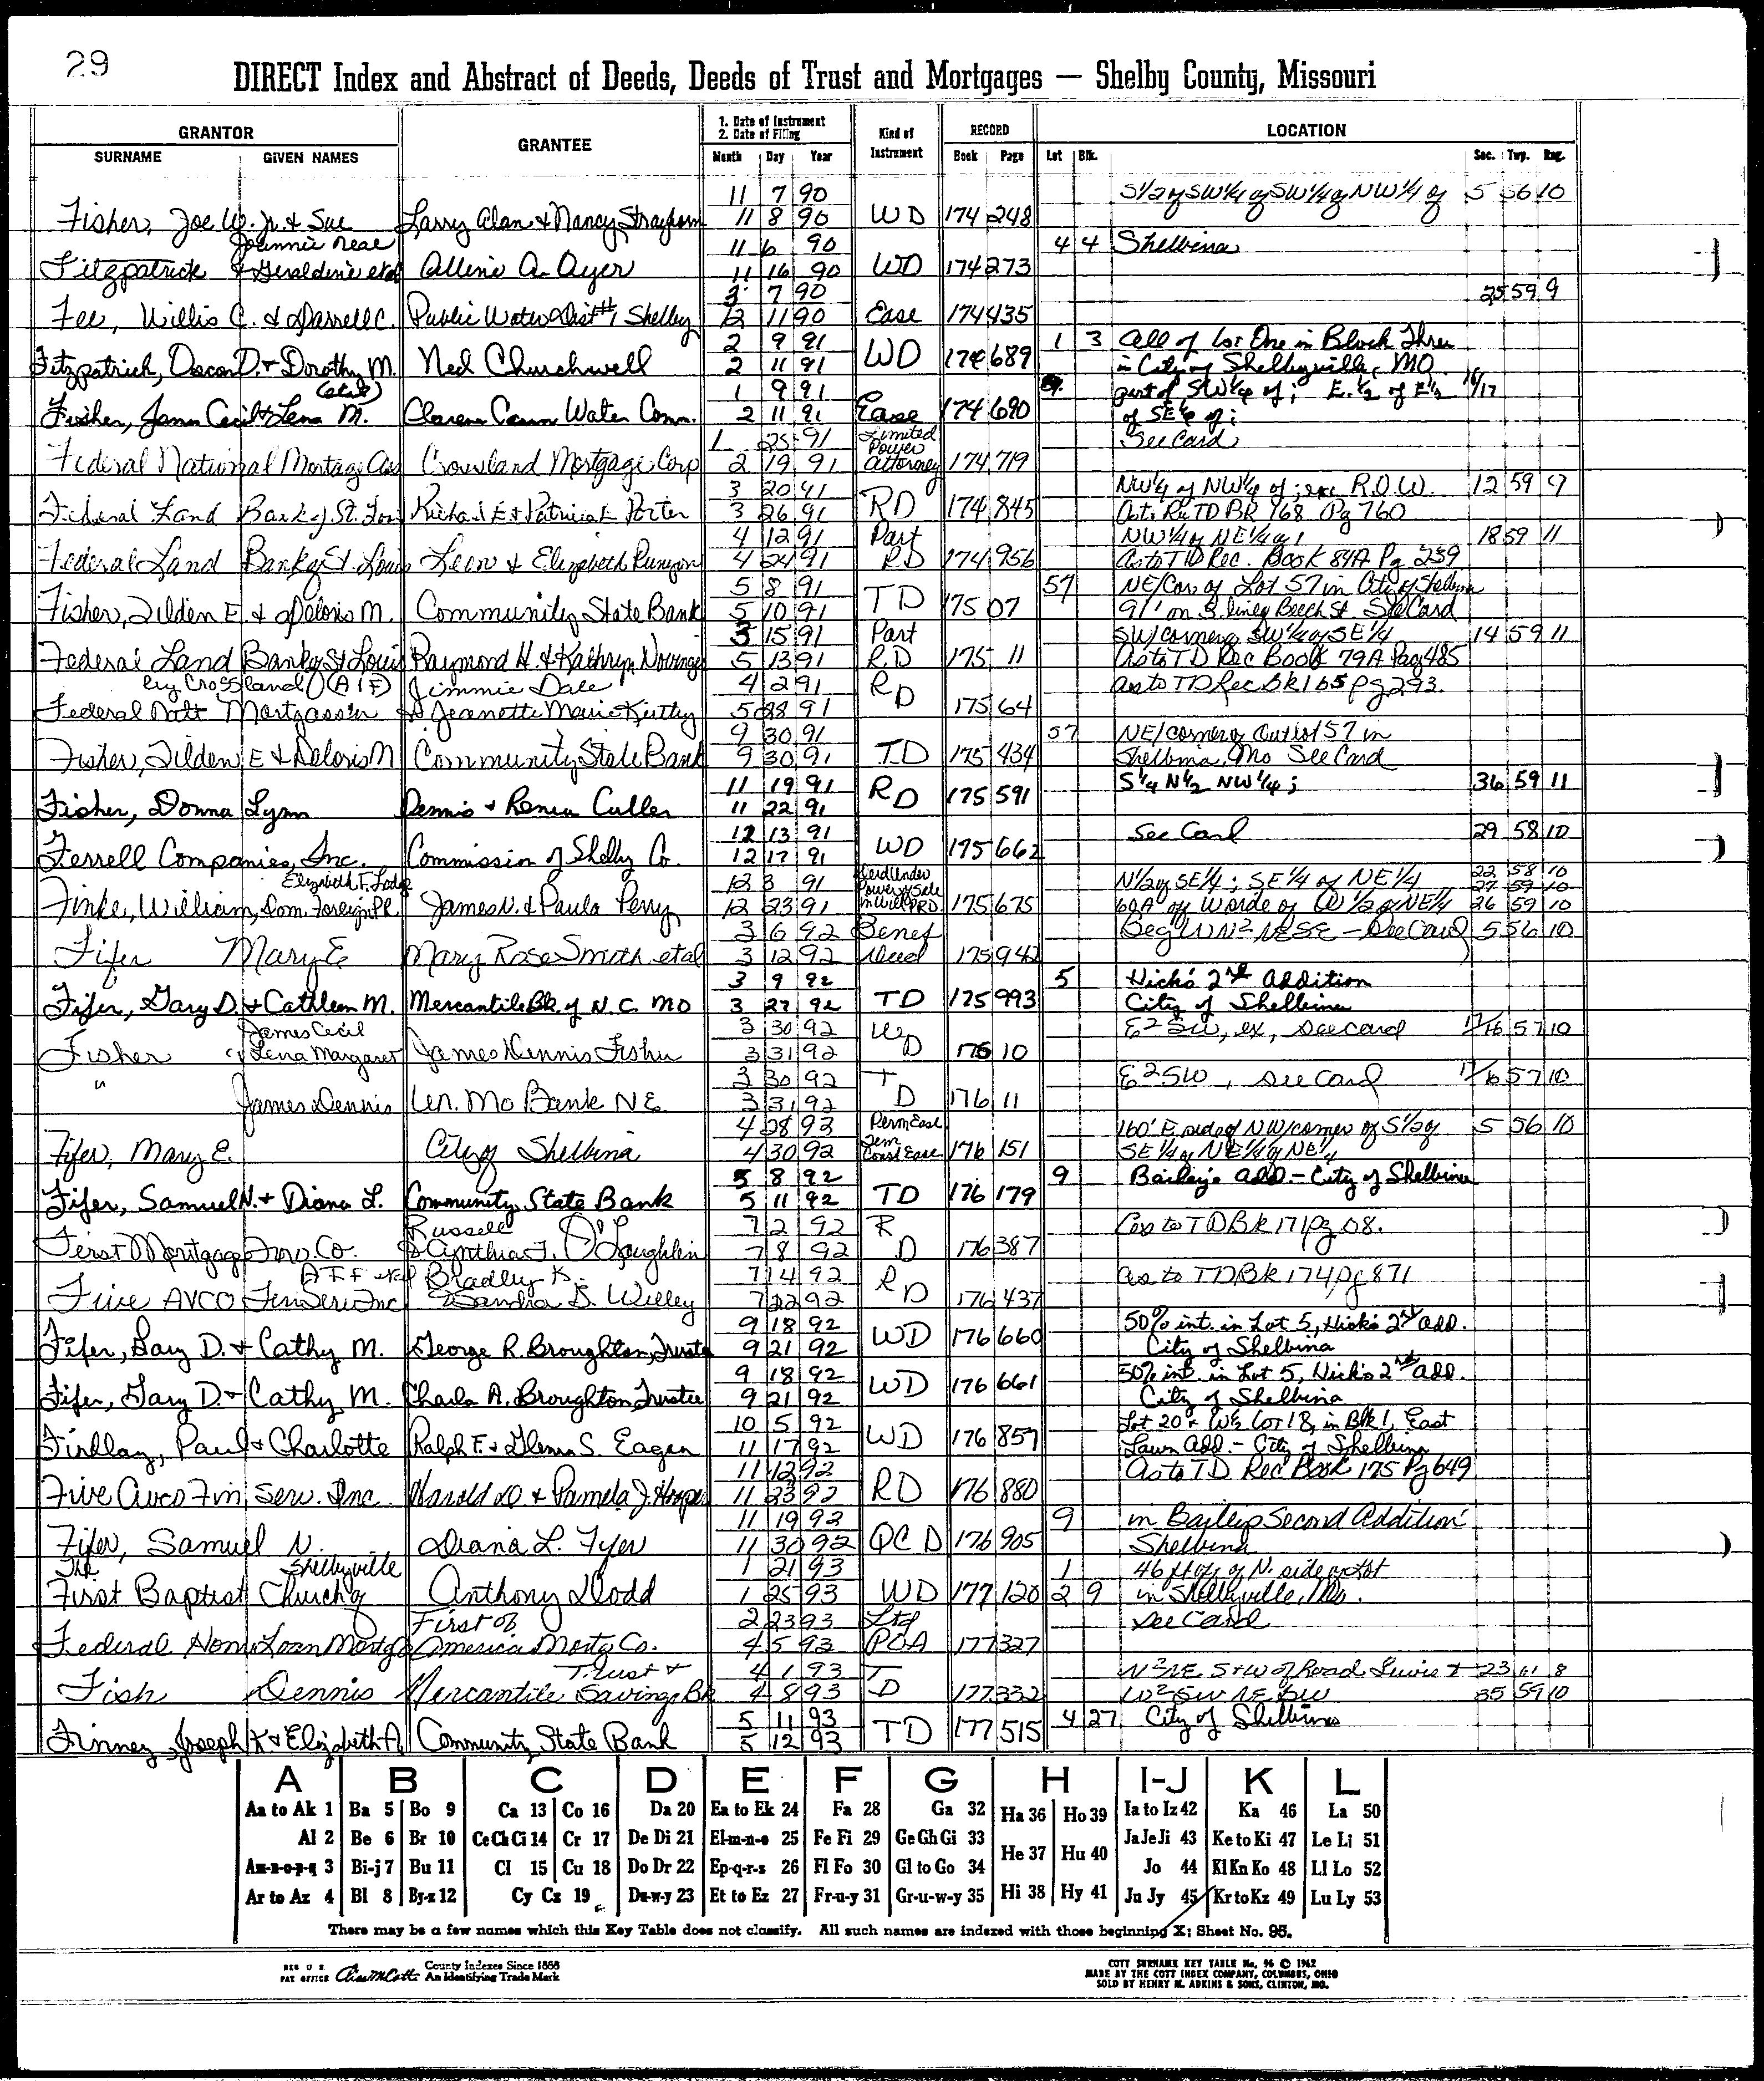 29
DIRECT Index and Abstract of Deeds, Deeds of Trust and Mortgages — Shelby County, Missouri
GRANTOR
SURNAME GIVEN NAMES
GRANTEE
1. Date of Instrument
2. Date of Filing
Month Day Year
Kind of Instrument
RECORD
Book Page
LOCATION
Lot Blk. Sec. Twp. Rng.
11 7 90 S1/2 of SW1/4 of SW1/4 of NW1/4 of 5 56 10
Fisher, Joe W. Jr. & Sue Larry Alan & Nancy 11 8 90 WD 174 248
Johnnie Neal 11 6 90 4 4 Shelbina
Fitzpatrick & Geraldine etal Allene A. Ayer 11 16 90 WD 174 273
3 7 90 25 59 9
Fee, Willis C. & Darrell C. Public Water Dist #1 Shelby 12 11 90 Ease 174 435
2 9 91 1 3 All of Lot One in Block Three
Fitzpatrick, D. & Dorothy M. Ned Churchwell 2 11 91 WD 174 689 in City of Shelbyville, MO.
(etal) 1 9 91 part of SW1/4 of; E. 1/2 of E1/2 16/17
Fisher, James Cecil & Lena M. Clarence Cann Water Comm. 2 11 91 Ease 174 690 of SE1/4 of;
1 25 91 Limited Power See Card
Federal National Mortage Ass Crossland Mortgage Corp 2 19 91 Attorney 174 719
3 20 91 NW1/4 of NW1/4 of; exc R.O.W. 12 59 9
Federal Land Bank of St. Lou Richard E & Patricia K Porter 3 26 91 RD 174 845 As to TD BK 168 Pg 760
4 12 91 Part NW1/4 of NE1/4 of 18 59 11
Federal Land Bank of St. Louis Leon & Elizabeth Runyon 4 24 91 RD 174 956 As to TD Rec. Book 84A Pg 239
5 8 91 57 NE/Cor of Lot 57 in City of Shelbina
Fisher, Tilden E. & Deloris M. Community State Bank 5 10 91 TD 175 07 91' on S. line of Beech St See Card
3 15 91 Part SW/corner of SW1/4 of SE1/4 14 59 11
Federal Land Bank of St Louis Raymond H. & Kathryn Novinger 5 13 91 RD 175 11 As to TD Rec Book 79A Pag 485
by Crossland (AIF) Jimmie Dale 4 2 91 RD as to TD Rec Bk 165 pg 293.
Federal Natl Mortg Ass'n & Jeanette Marie Kirtley 5 28 91 175 64
9 30 91 57 NE/corner of Outlot 57 in
Fisher, Tilden E & Deloris M Community State Bank 9 30 91 TD 175 434 Shelbina, Mo See Card
11 19 91 S1/4 N1/2 NW1/4; 36 59 11
Fisher, Donna Lynn Dennis & Renea Culler 11 22 91 RD 175 591
12 13 91 See Card 29 58 10
Ferrell Companies, Inc. Commission of Shelby Co. 12 17 91 WD 175 662
Elizabeth F. 12 3 91 Deed Under Power of Sale N1/2 of SE1/4; SE1/4 of NE1/4 22 58 10
27 59 10
Finke, William, Dom. Foreign P.R. James N. & Paula Perry 12 23 91 in Will PRD 175 675 60A off W side of W1/2 of NE1/4 26 59 10
3 6 92 Benef Beg W N2 NE SE - See Card 5 56 10
Fifer Mary E Mary Rose Smith etal 3 12 92 Deed 175 942
3 9 92 5 Hick's 2nd Addition
Fifer, Gary D. & Cathleen M. Mercantile Bk. of N.C. MO 3 27 92 TD 175 993 City of Shelbina
James Cecil 3 30 92 WD E2 SW, ex, see card 17/16 57 10
Fisher & Lena Margaret James Dennis Fisher 3 31 92 176 10
3 30 92 TD E2 SW, See Card 17/16 57 10
" James Dennis Un. Mo Bank NE. 3 31 92 176 11
4 28 92 Perm Ease 160' E side of NW/corner of S1/2 of 5 56 10
Fifer, Mary E. City of Shelbina 4 30 92 Tem Const Ease 176 151 SE1/4 of NE1/4 of NE1/4
5 8 92 9 Bailey's add. - City of Shelbina
Fifer, Samuel N. & Diana L. Community State Bank 5 11 92 TD 176 179
Russell 7 2 92 RD as to TD Bk 171 pg 08.
First Mortgage Inv. Co. & Cynthia F. O'Loughlin 7 8 92 176 387
AIF etal Bradley K. 7 14 92 RD as to TD Bk 174 pg 871
Five AVCO Fin Serv Inc & Sandra S. Willey 7 22 92 176 437
9 18 92 50% int. in Lot 5, Hick's 2nd add.
Fifer, Gary D. & Cathy M. George R. Broughton, Trustee 9 21 92 WD 176 660 City of Shelbina
9 18 92 50% int. in Lot 5, Hick's 2nd add.
Fifer, Gary D. & Cathy M. Charla A. Broughton, Trustee 9 21 92 WD 176 661 City of Shelbina
10 5 92 Lot 20 & W1/2 Lot 18, in Blk 1, East
Findlay, Paul & Charlotte Ralph F. & Glenna S. Eagen 11 17 92 WD 176 857 Lawn Add. - City of Shelbina
11 12 92 As to TD Rec Book 175 Pg 649
Five Avco Fin Serv. Inc. Harold D & Pamela J. Hooper 11 23 92 RD 176 880
11 19 92 9 in Baileys Second Addition
Fifer, Samuel N. Diana L. Fyer 11 30 92 QCD 176 905 Shelbina
The Shelbyville 1 21 93 1 46 ft off of N. side of Lot
First Baptist Church of Anthony Dodd 1 25 93 WD 177 120 2 9 in Shelbyville, Mo.
First of 2 23 93 Ltd See Card
Federal Home Loan Mortg America Mortg Co. 4 5 93 POA 177 327
Trust & 4 1 93 T N2 NE, S & W of Road 23 61 8
Fish Dennis Mercantile Savings Bk 4 8 93 D 177 332 W2 SW NE SW 35 59 10
5 11 93 4 27 City of Shelbina
Finney, Joseph K & Elizabeth A Community State Bank 5 12 93 TD 177 515
A B C D E F G H I-J K L
Aa to Ak 1 Ba 5 Bo 9 Ca 13 Co 16 Da 20 Ea to Ek 24 Fa 28 Ga 32 Ha 36 Ho 39 Ia to Iz 42 Ka 46 La 50
Al 2 Be 6 Br 10 Ce Ch Ci 14 Cr 17 De Di 21 El-m-n-o 25 Fe Fi 29 Ge Gh Gi 33 He 37 Hu 40 Ja Je Ji 43 Ke to Ki 47 Le Li 51
Am-n-o-p-q 3 Bi-j 7 Bu 11 Cl 15 Cu 18 Do Dr 22 Ep-q-r-s 26 Fl Fo 30 Gl to Go 34 Jo 44 Kl Kn Ko 48 Ll Lo 52
Ar to Az 4 Bl 8 By-z 12 Cy Cz 19 Du-w-y 23 Et to Ez 27 Fr-u-y 31 Gr-u-w-y 35 Hi 38 Hy 41 Ju Jy 45 Kr to Kz 49 Lu Ly 53
There may be a few names which this Key Table does not classify. All such names are indexed with those beginning X; Sheet No. 95.
REG U S PAT OFFICE County Indexes Since 1888 An Identifying Trade Mark
COTT SURNAME KEY TABLE No. 96 © 1962
MADE BY THE COTT INDEX COMPANY, COLUMBUS, OHIO
SOLD BY HENRY M. ADKINS & SONS, CLINTON, MO.